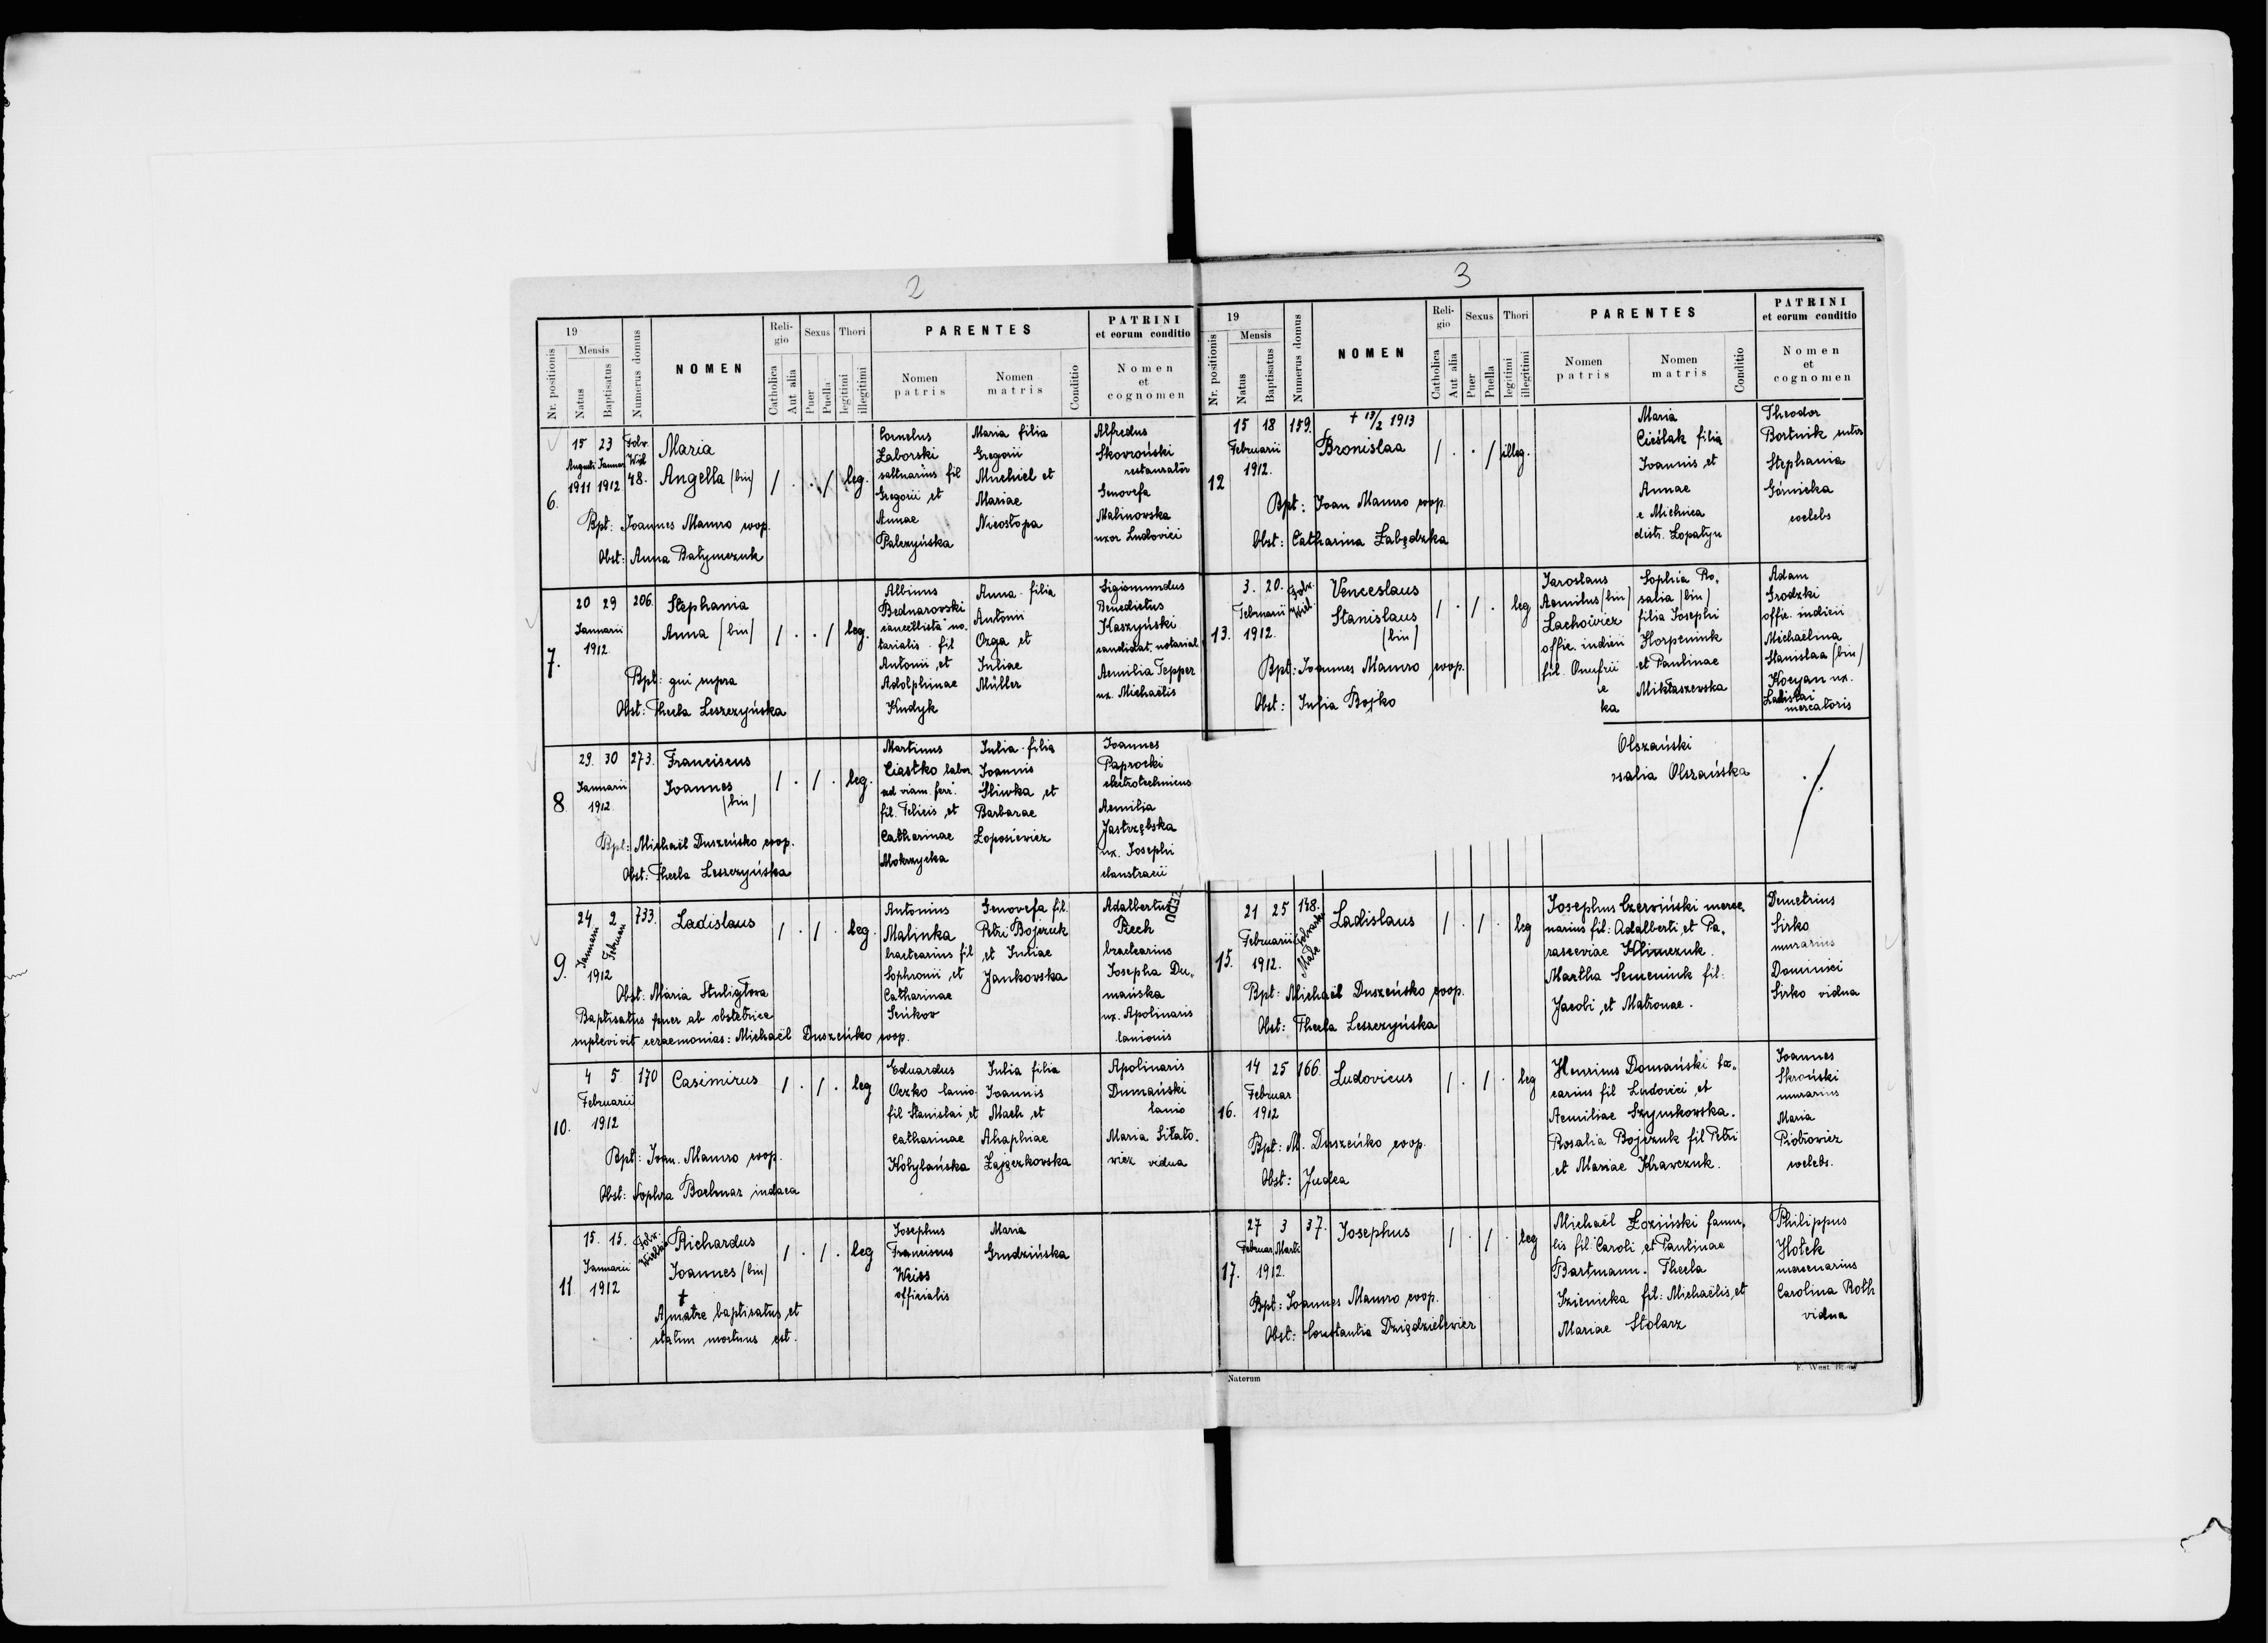 2
19
Nr. positionis
Mensis
Natus
Baptisatus
Numerus domus
NOMEN
Religio
Catholica
Aut alia
Sexus
Puer
Puella
Thori
legitimi
illegitimi
PARENTES
Nomen patris
Nomen matris
Conditio
PATRINI
et eorum conditio
Nomen
et
cognomen
6.
15 23
Augusti Januar
1911 1912
Folv. Wiel
48.
Maria
Angella (bin)
/ . . / leg.
Cornelus
Zaborski
saltuarius fil
Gregorii et
Annae
Palczyńska
Maria filia
Gregorii
Muchiel et
Mariae
Nieostopa
Alfredus
Skowroński
restaurator
Genovefa
Malinowska
uxor Ludovici
Bpt: Joannes Mauro coop.
Obst: Anna Batymczuk
7.
20 29
Januarii
1912
206.
Stephania
Anna (bin)
/ . . / leg.
Albinus
Bednarovski
cancellista no.
tarialis. fil
Antonii et
Adolphinae
Kudyk
Anna filia
Antonii
Ozga et
Juliae
Müller
Sigismundus
Benedictus
Kaszyński
candidat. notarial.
Aemilia Tepper
ux. Michaëlis
Bpt: qui supra
Obst: Thecla Leszczyńska
8
29. 30
Januarii
1912.
273.
Franciscus
Joannes
(bin)
/ . / . leg.
Martinus
Ciastko labor.
ad viam. ferr.
fil. Felicis et
Catharinae
Mokrzycka
Julia filia
Joannis
Śliwka et
Barbarae
Łoposiewicz
Joannes
Paprocki
electrotechnicus
Aemilia
Jastrzębska
ux. Josephi
claustrarii
Bpt: Michaël Duszeńko coop.
Obst: Thecla Leszczyńska
9.
24 2
Januarii Februari
1912
733.
Ladislaus
/ . / . leg.
Antonius
Malinka
bractearius fil
Sophronii et
Catharinae
Seńkov
Genovefa fil.
Petri Bojczuk
et Juliae
Jankovska
Adalbertus
Piech
bractearius
Josepha Du„
mańska
ux. Apolinaris
lanionis
Obst: Maria Stuligłowa
Baptisatus puer ab obstetrice
suplevi vit ceraemonias: Michaël Duszeńko coop.
10.
4 5
Februarii
1912
170
Casimirus
/ . / . leg
Eduardus
Oczko lanio
fil Stanislai et
Catharinae
Kotylańska
Julia filia
Joannis
Mach et
Ahaphiae
Zajączkowska
Apolinaris
Dumański
lanio
Maria Siłato.
wicz vidua
Bpt: Joan. Mauro coop.
Obst: Sophia Bachmar indaea
11
15. 15.
Januarii
1912
Folv. Wielkie
Richardus
Joannes (bin)
/ . / . leg
Josephus
Franciscus
Weiss
officialis
Maria
Grudzińska
†
A matre baptisatus et
statim mortuus est.
3
19
Nr. positionis
Mensis
Natus
Baptisatus
Numerus domus
NOMEN
Religio
Catholica
Aut alia
Sexus
Puer
Puella
Thori
legitimi
illegitimi
PARENTES
Nomen
patris
Nomen
matris
Conditio
PATRINI
et eorum conditio
Nomen
et
cognomen
12
15 18
Februarii
1912.
159.
Bronislaa
/ . . / illeg.
Maria
Cieślak filia
Joannis et
Annae
e Michnica
distr. Łopatyn
Theodor
Bortnik sutor
Stephania
Górnicka
coelebs
Bpt: Joan Mauro coop.
Obst: Catharina Łabędzka
13.
3. 20.
Februarii
1912.
Folv. Wiel.
Venceslaus
Stanislaus
(bin)
/ . / . leg
Jaroslaus
Aemilus (bin)
Lachowicz
offic. iudicii
fil. Onufrii
ka
Sophia Ro„
salia (bin)
filia Josephi
Horpeniuk
et Paulinae
Mikłaszewska
Adam
Grodzki
offic. iudicii
Michaëlina
Stanislaa (bin)
Kocyan ux.
Ladislai
mercatoris
Bpt: Joannes Mauro coop.
Obst: Julia Bojko
Olszański
salia Olszańska
15.
21 25
Februarii
1912.
148.
Folwarki Małe
Ladislaus
/ . / . leg
Josephus Czerwiński merce„
narius fil: Adalberti et Pa„
rasceviae Klimczuk.
Martha Semeniuk fil:
Jacobi et Matronae.
Demetrius
Sirko
murarius
Dominici
Sirko vidua
Bpt: Michaël Duszeńsko coop.
Obst: Thecla Leszczyńska
16.
14 25
Februar
1912
166.
Ludovicus
/ . / . leg
Henricus Domański lo„
carius fil Ludovici et
Aemiliae Szymkowska.
Rosalia Bojczuk fil Petri
et Mariae Krawczuk.
Joannes
Skroński
murarius
Maria
Piotrowicz
coelebs.
Bpt: M. Duszeńko coop.
Obst: Judea
17.
27 3
Februar Marti
1912.
37.
Josephus
/ . / . leg
Michaël Łoziński famu„
lis fil: Caroli et Paulinae
Bartmann. Thecla
Szienicka fil: Michaëlis et
Mariae Stolarz
Philippus
Hołek
mercenarius
Carolina Roth
vidua
Bpt: Joannes Mauro coop.
Obst: Constantia Dziędzielewicz
Natorum
F. West